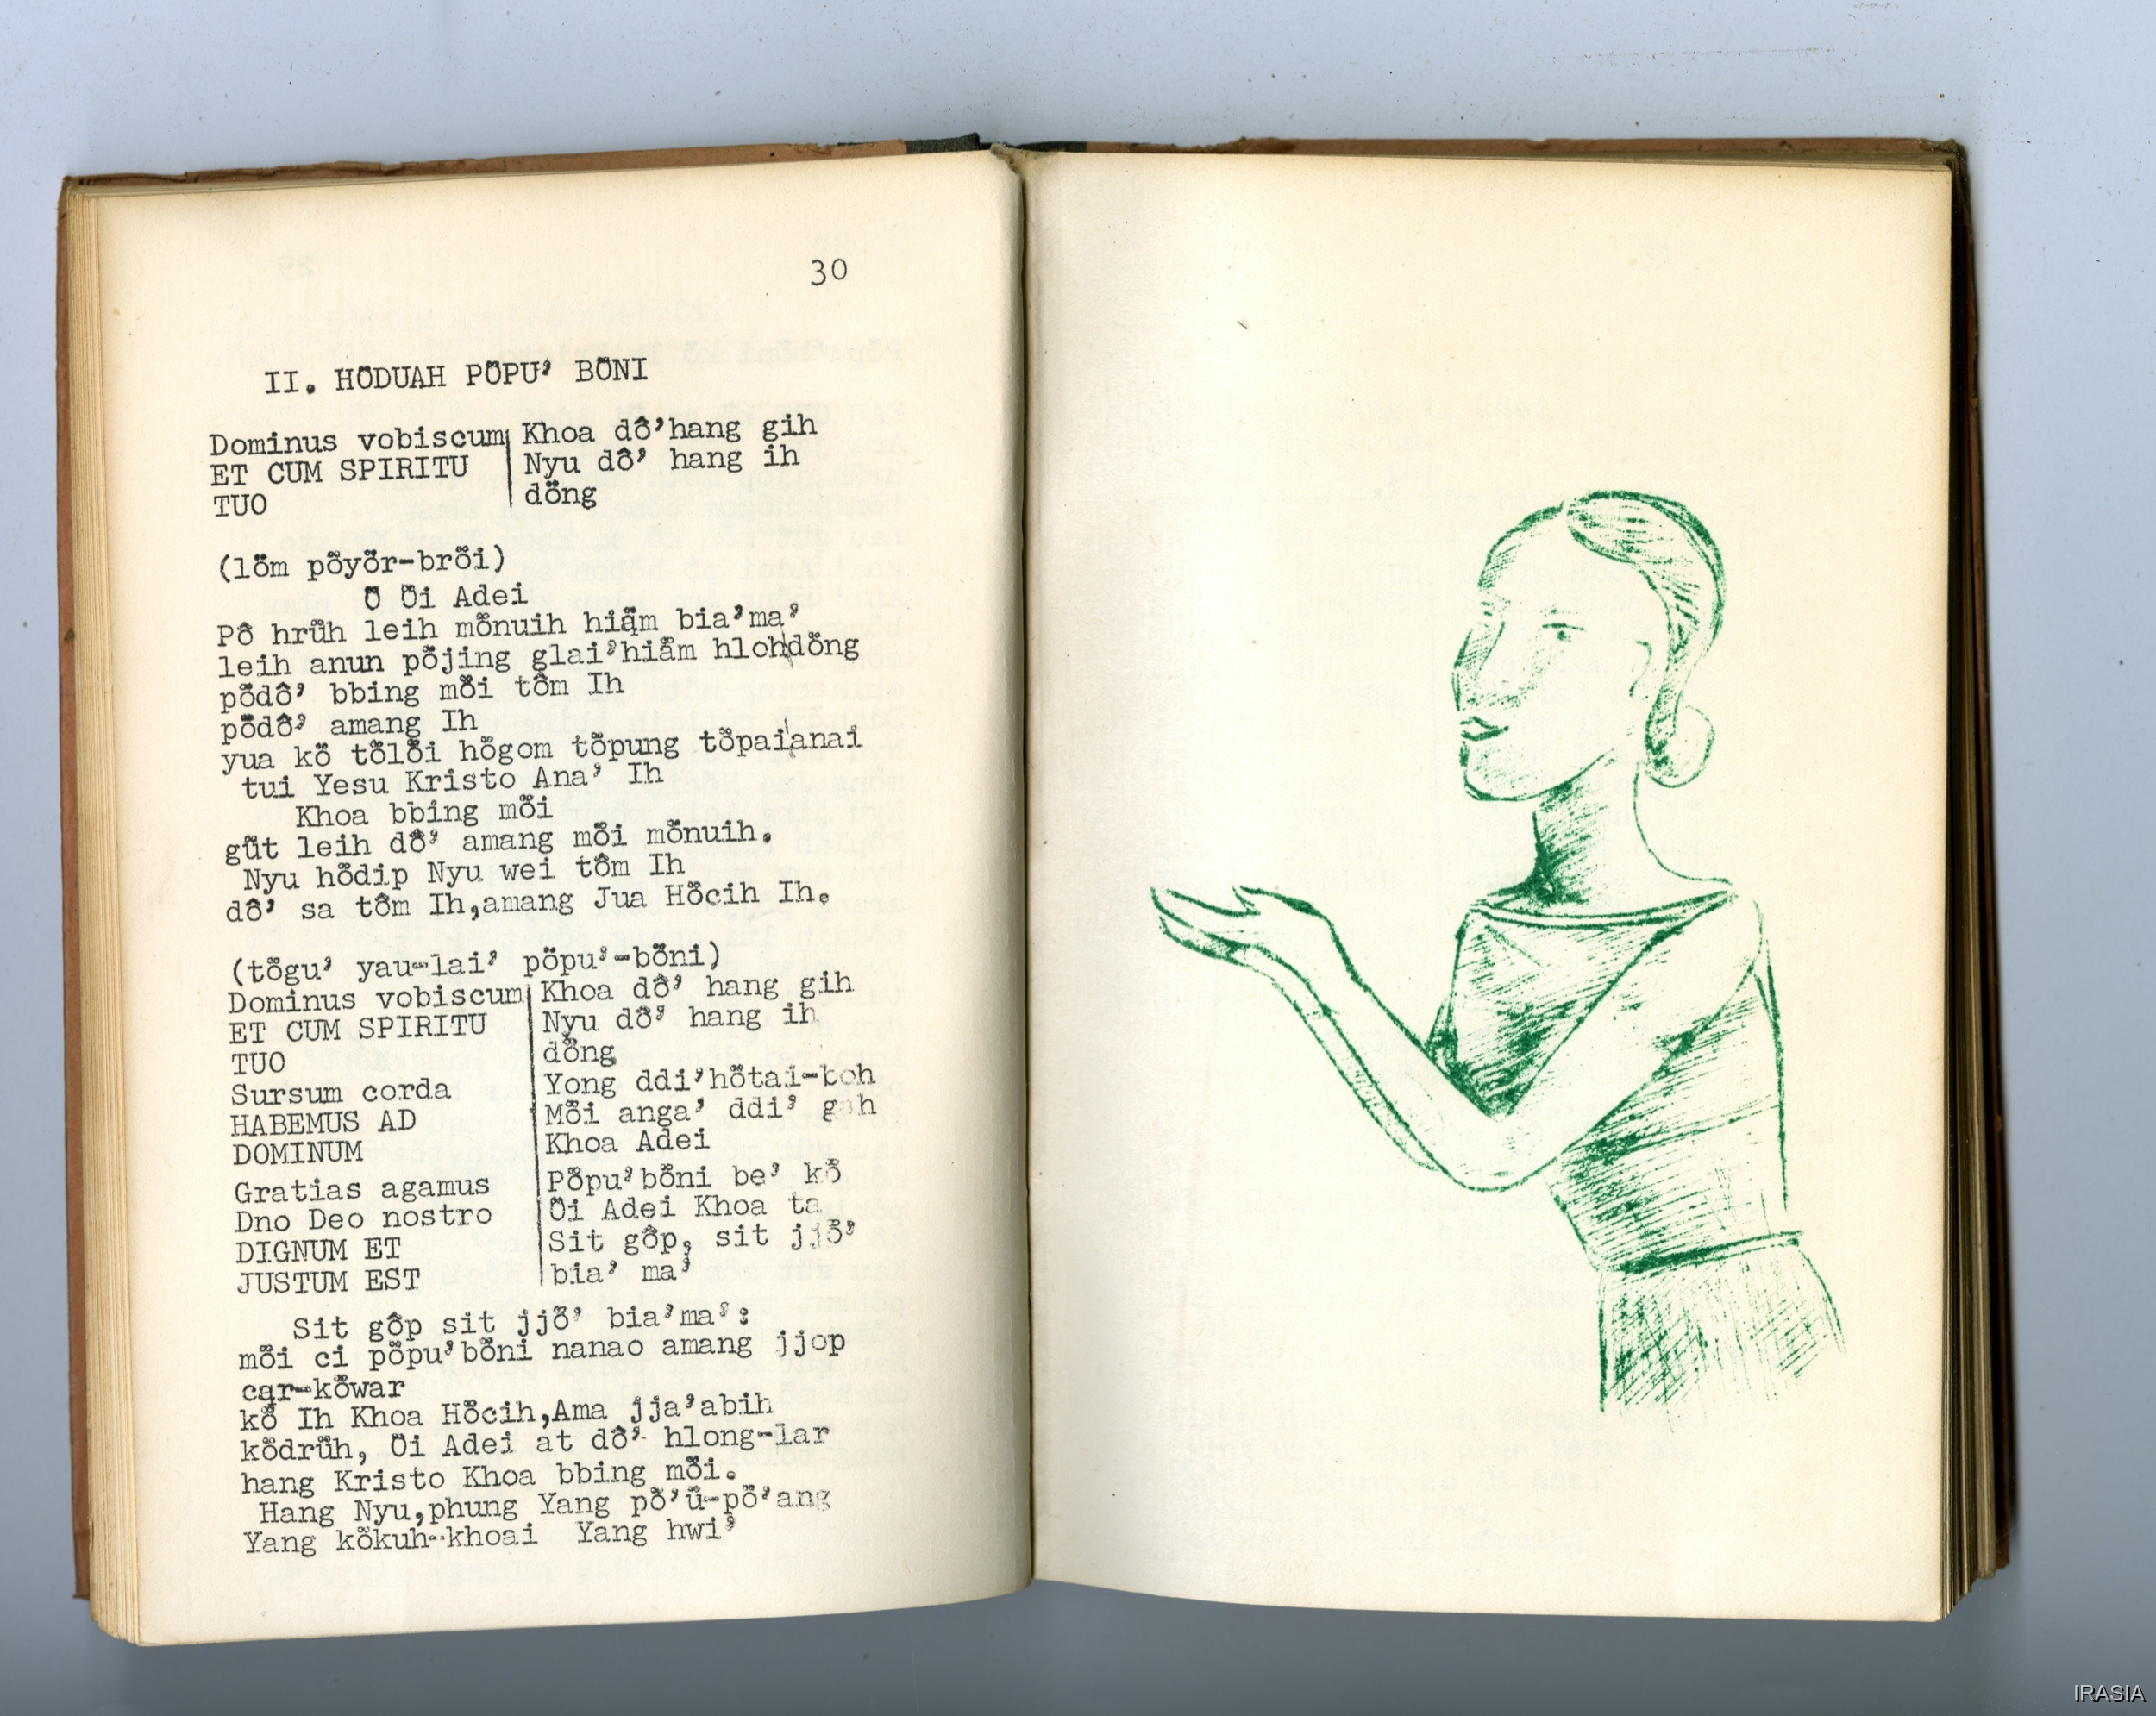 30
II. HÖDUAH PÖPU’ BÖNI
Dominus vobiscum | Khoa dô̆’hang gih
ET CUM SPIRITU | Nyu dô̆’ hang ih
TUO | dö̆ng
(lö̆m pö̆yö̆r-brö̆i)
Ö Öi Adei
Pô hrü̆h leih mö̆nuih hiă̈m bia’ma’
leih anun pö̆jing glai’hiă̈m hlohdö̆ng
pö̆dô̆’ bbing mö̆i tô̆m Ih
pö̆dô̆’ amang Ih
yua kö̆ tö̆lö̆i hö̆gom tö̆pung tö̆paianai
tui Yesu Kristo Ana’ Ih
Khoa bbing mö̆i
gü̆t leih dô̆’ amang mö̆i mö̆nuih.
Nyu hö̆dip Nyu wei tô̆m Ih
dô̆’ sa tô̆m Ih,amang Jua Hö̆cih Ih.
(tö̆gu’ yau-lai’ pö̆pu’-bö̆ni)
Dominus vobiscum | Khoa dô̆’ hang gih
ET CUM SPIRITU | Nyu dô̆’ hang ih
TUO | dö̆ng
Sursum corda | Yong ddi’hö̆tai-boh
HABEMUS AD | Mö̆i anga’ ddi’ gah
DOMINUM | Khoa Adei
Gratias agamus | Pö̆pu’bö̆ni be’ kö̆
Dno Deo nostro | Öi Adei Khoa ta
DIGNUM ET | Sit gô̆p, sit jjö̆’
JUSTUM EST | bia’ ma’
Sit gô̆p sit jjö̆’ bia’ma’:
mö̆i ci pö̆pu’bö̆ni nanao amang jjop
car-kö̆war
kö̆ Ih Khoa Hö̆cih,Ama jja’abih
kö̆drü̆h, Öi Adei at dô̆’ hlong-lar
hang Kristo Khoa bbing mö̆i.
Hang Nyu,phung Yang pö̆’ü̆-pö̆’ang
Yang kö̆kuh-khoai Yang hwi’
IRASIA